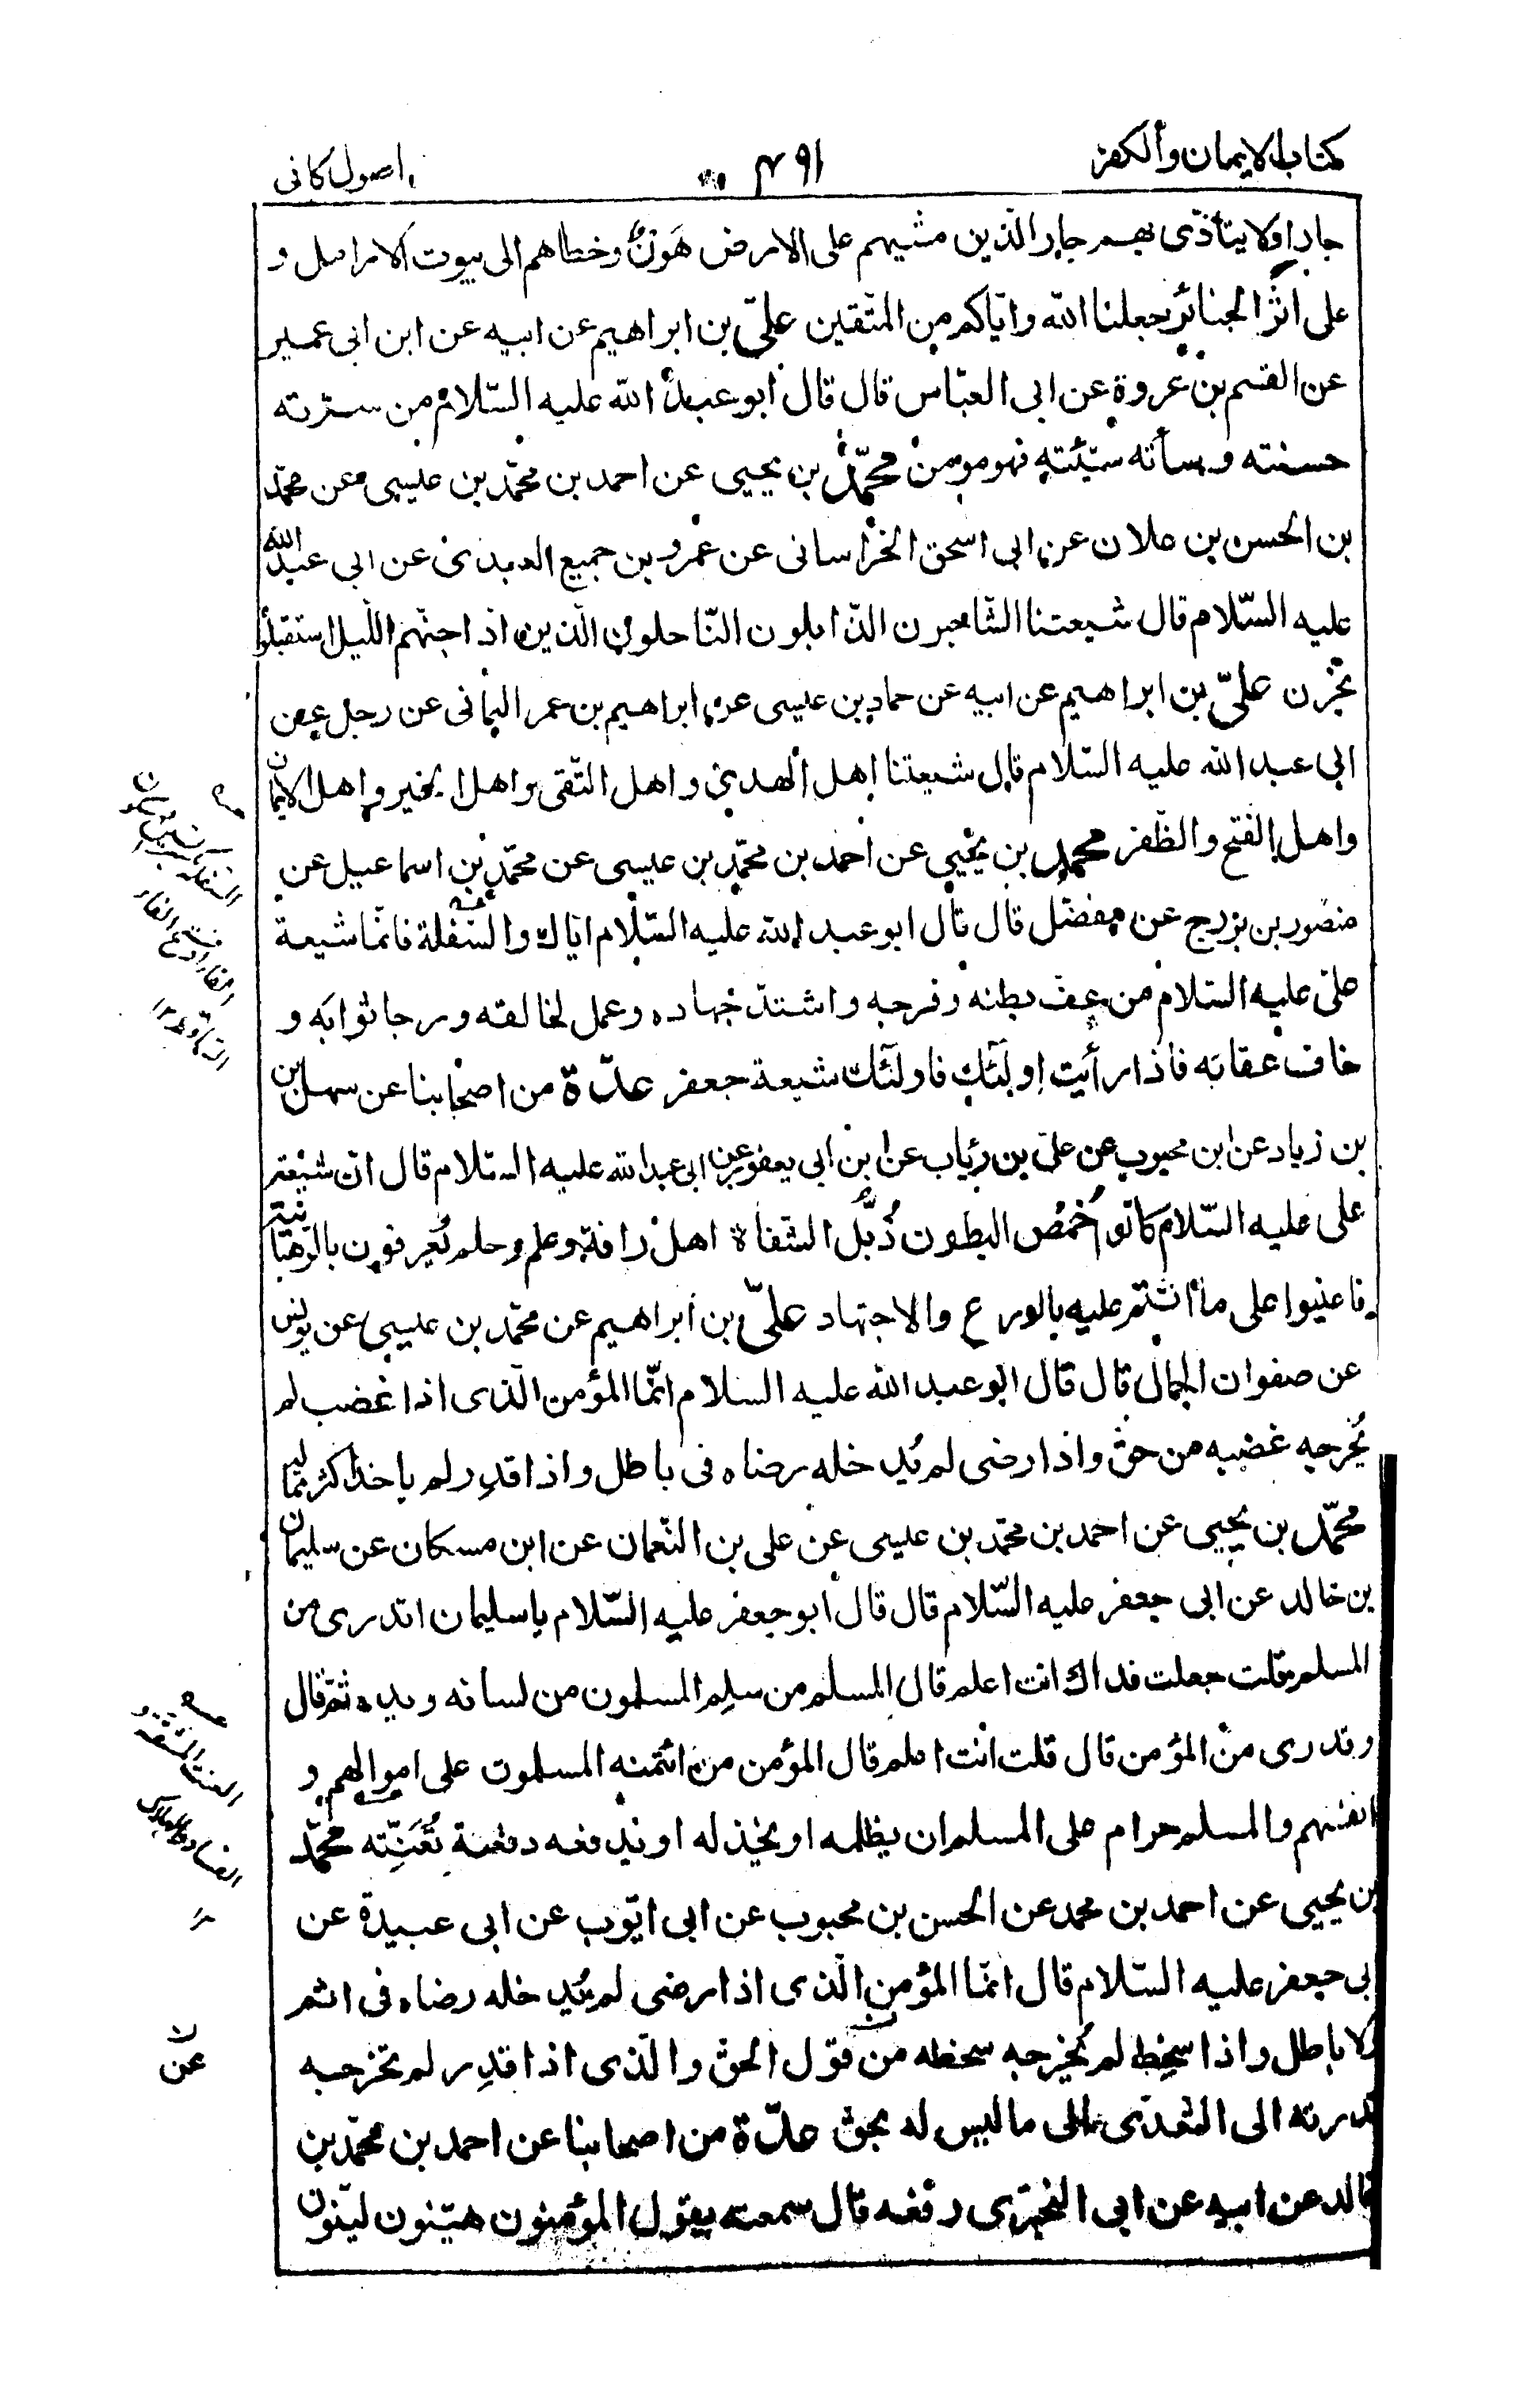 كتاب الايمان والكفر
٤٩١
اصول كافى
جارا ولا يتأذّى بهم جار الّذين مشيهم على الارض هَونٌ وخطاهم الى بيوت الارامل و
على اثر الجنائز جعلنا الله وايّاكم من المتّقين علىّ بن ابراهيم عن ابيه عن ابن ابى عمير
عن القسم بن عروة عن ابى العبّاس قال قال ابو عبد الله عليه السّلام من سرته
حسنته وسأته سيّئته فهو مومن محمّد بن يحيى عن احمد بن محمّد بن عيسى عن محمّد
بن الحسن بن علان عن ابى اسحق الخراسانى عن عمرو بن جميع العبدى عن ابى عبد الله
عليه السّلام قال شيعتنا الشّاحبون الذّابلون النّاحلون الّذين اذا جنّهم اللّيل استقبلوه
بحزن علىّ بن ابراهيم عن ابيه عن حماد بن عيسى عن ابراهيم بن عمر اليمانى عن رجل عن
ابى عبد الله عليه السّلام قال شيعتنا اهل الهدى واهل التّقى واهل الخير واهل الايمان
واهل الفتح والظّفر محمد بن يحيى عن احمد بن محمّد بن عيسى عن محمّد بن اسماعيل عن
منصور بن بزرج عن مفضّل قال قال ابو عبد الله عليه السّلام ايّاك والسّفلة فانّما شيعة
علىّ عليه السّلام من عفّ بطنه وفرجه واشتدّ جهاده وعمل لخالقه ورجا ثوابه و
خاف عقابه فاذا رأيت اولئك فاولئك شيعة جعفر عدّة من اصحابنا عن سهل بن
بن زياد عن ابن محبوب عن علىّ بن رئاب عن ابن ابى يعفور عن ابى عبد الله عليه السّلام قال انّ شيعة
على عليه السّلام كانوا خُمُص البطون ذُبُل الشفاة اهل رافة وعلم وحلم يُعرفون بالرهبانية
فاعنيوا على ما انتم عليه بالورع والاجتهاد علىّ بن ابراهيم عن محمّد بن عيسى عن يونس
عن صفوان الجمال قال قال ابو عبد الله عليه السلام انّما المؤمن الّذى اذا غضب لم
يُخرجه غضبه من حقّ واذا رضى لم يُدخله رضاه فى باطل واذا قدِر لم ياخذ اكثر ممّا له
محمّد بن يحيى عن احمد بن محمّد بن عيسى عن على بن النّعمان عن ابن مسكان عن سليمان
بن خالد عن ابى جعفر عليه السّلام قال قال ابو جعفر عليه السّلام يا سليمان اتدرى من
المسلم قلت جعلت فداك انت اعلم قال المسلم من سلِم المسلمون من لسانه ويده ثمّ قال
وتدرى من المؤمن قال قلت انت اعلم قال المؤمن من ائتمنه المسلمون على اموالهم و
انفسهم والمسلم حرام على المسلم ان يظلمه او يخذله او يدفعه دفعة تُعَنِّته محمّد
بن يحيى عن احمد بن محمد عن الحسن بن محبوب عن ابى ايّوب عن ابى عبيدة عن
ابى جعفر عليه السّلام قال انّما المؤمن الّذى اذا رضى لم يُدخله رضاه فى اثم
ولا باطل واذا سخِط لم يُخرجه سخطه من قول الحقّ والّذى اذا قدِر لم تخرجه
قدرته الى التّعدّى الى ما ليس له بحقّ عدّة من اصحابنا عن احمد بن محمّد بن
خالد عن ابيه عن ابى البخترى رفعه قال سمعته يقول المؤمنون هيّنون ليّنون